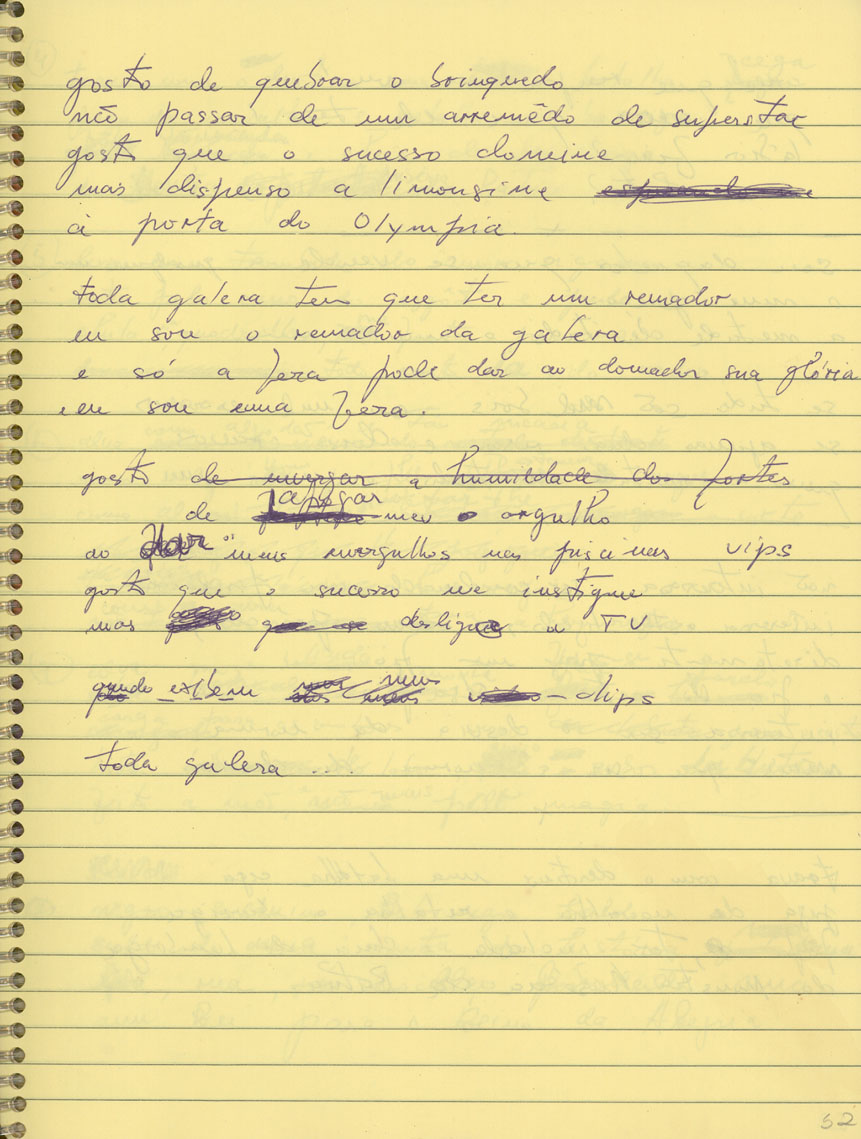 gosto de quebrar o brinquedo
não passar de um arremêdo de superstar
gosto que o sucesso domine
mas dispenso a limousine
à porta do Olympia.
toda galera tem que ter um remador
eu sou o remador da galera
e só a fera pode dar ao domador sua glória
eu sou uma fera.
gosto de envergar a humildade dos fortes
de apagar meu orgulho
ao dar meus mergulhos nas piscinas vips
gosto que o sucesso me instigue
mas desligue a TV
quando exibem meus clips
toda galera ...
52